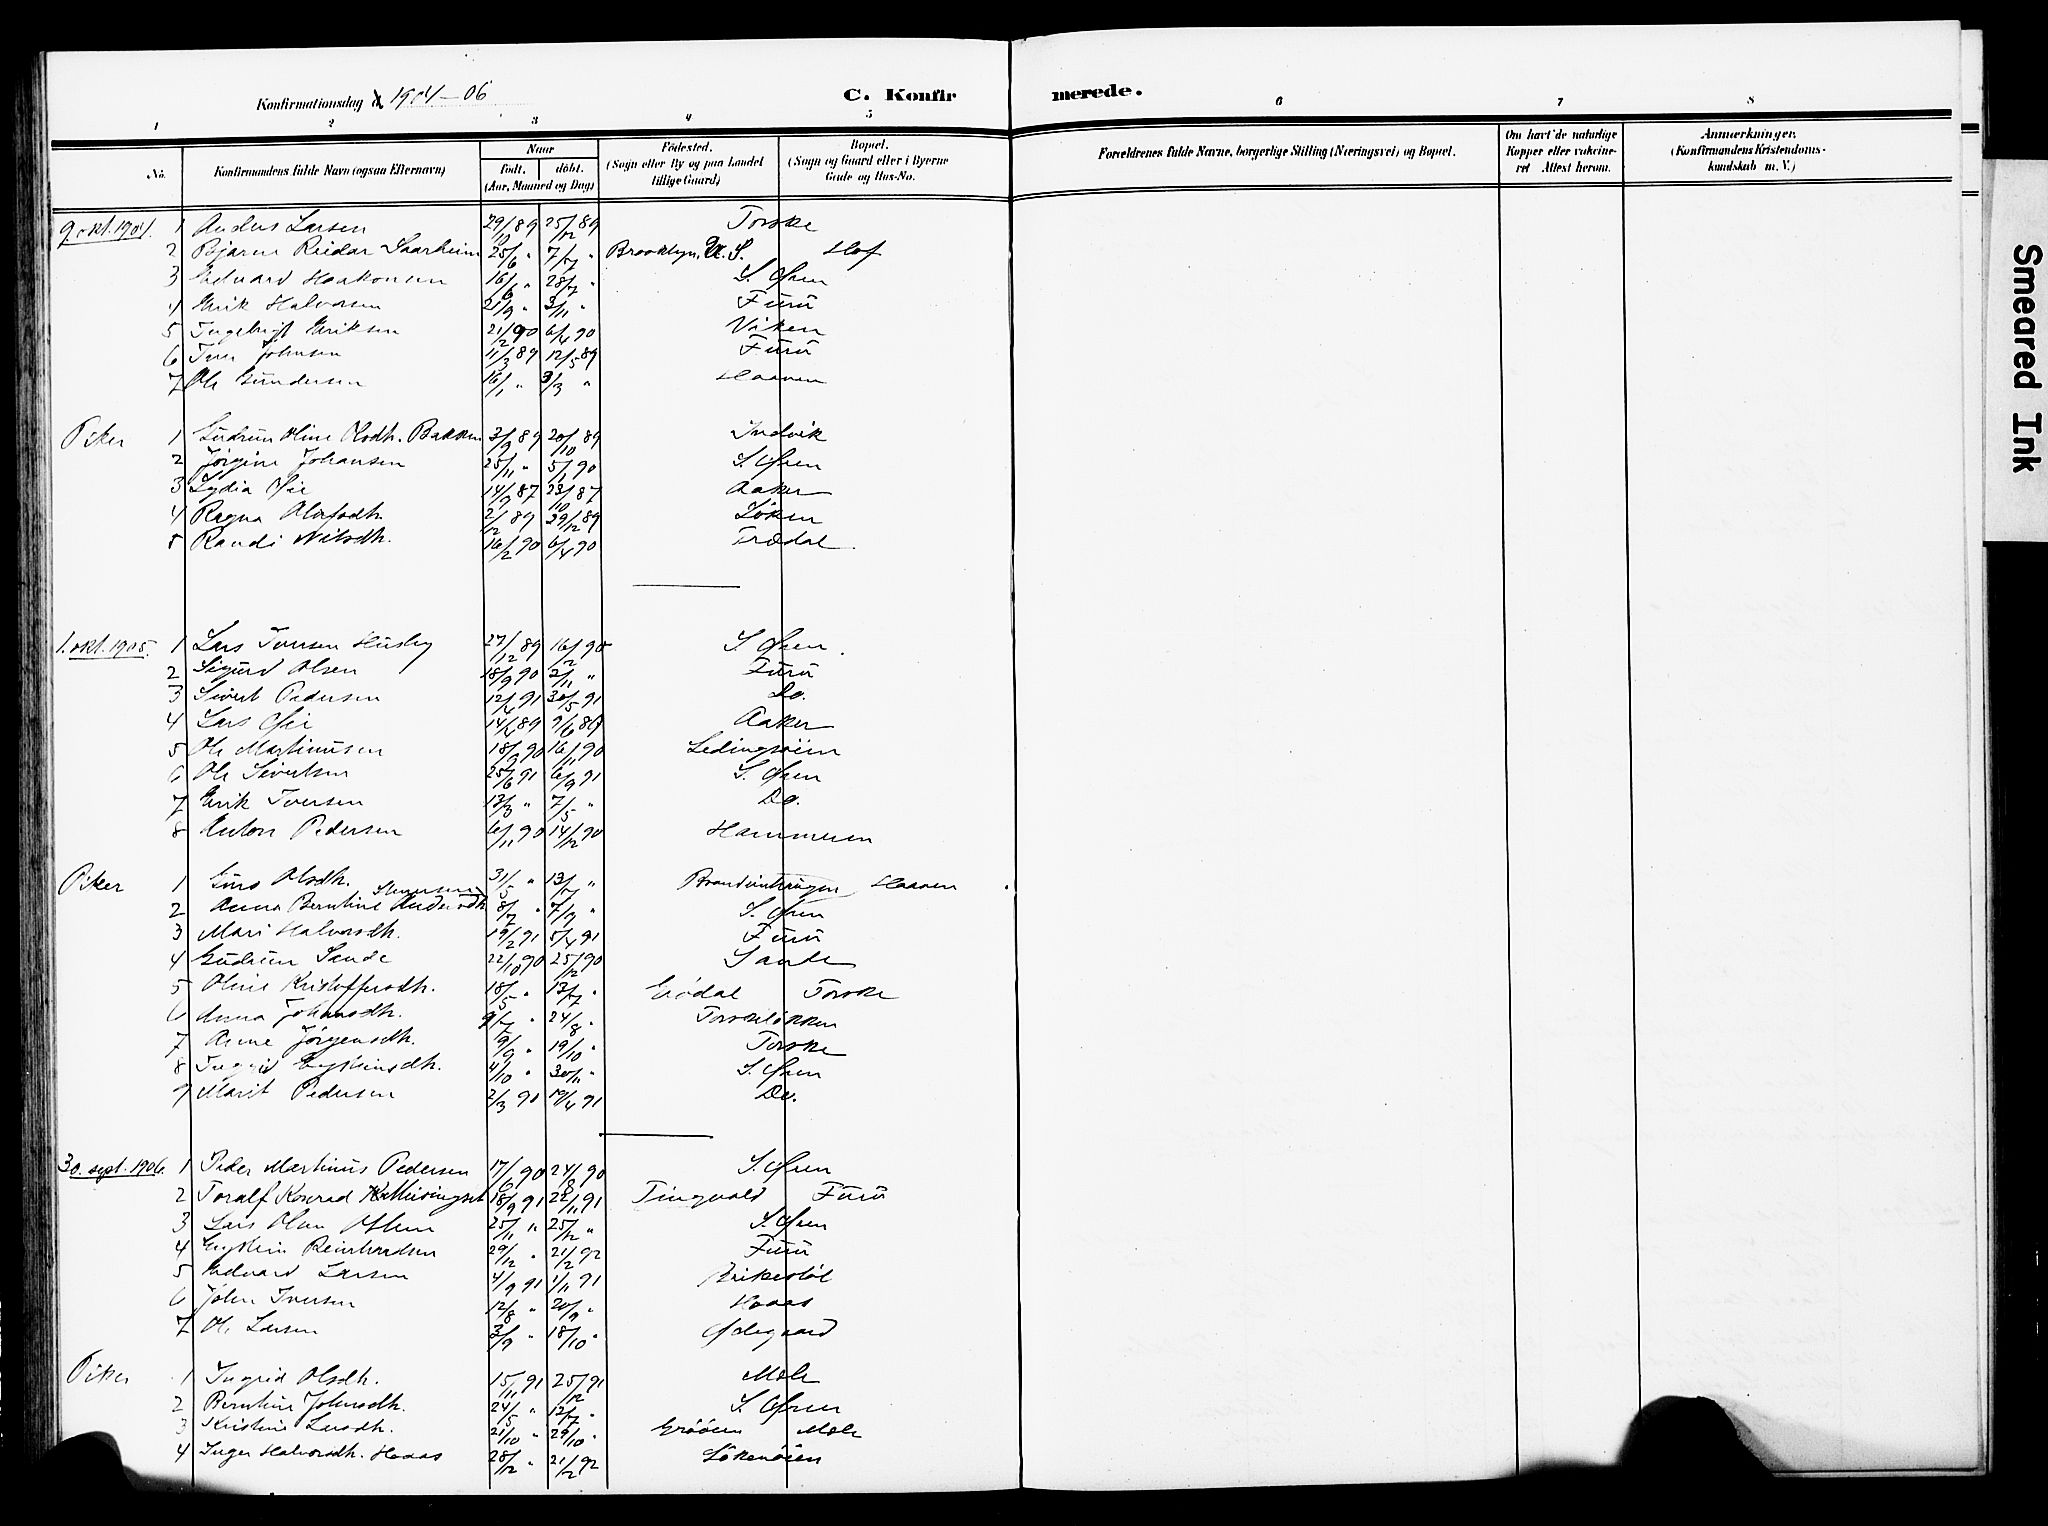 Konfirmationsdag d 1904-06 C. Konfirmerede.
1 2 3 4 5 6 7 8
No. Konfirmandens fulde Navn (ogsaa Efternavn) Naar født. døbt. (Aar, Maaned og Dag) Fødested. (Sogn eller By og paa Landet tillige Gaard) Bopæl. (Sogn og Gaard eller i Byerne Gade og Hus-No. Forældrenes fulde Navne, borgerlige Stilling (Næringsvei) og Bopæl. Om havt de naturlige Kopper eller vakcineret Attest herom. Anmærkninger, (Konfirmandens Kristendomskundskab m. V.)
9 okt. 1904. 1 Anders Larsen 29/10 89 25/12 89 Torske
2 Bjarne Reidar Saarheim 25/6 " 7/7 " Brooklyn, U. S. Hof
3 Edvard Haakonsen 16/6 " 28/7 " S. Øren
4 Erik Halvorsen 21/9 " 3/11 " Furu
5 Ingebrigt Eriksen 21/2 90 6/4 90 Viken
6 Iver Johnsen 11/3 89 12/5 89 Furu
7 Ole Gundersen 16/1 " 3/3 " Haaven
Piker 1 Gudrun Oline Olsdh. Bakken 3/9 89 20/10 89 Indvik
2 Jørgine Johansen 25/11 " 5/1 90 S. Øren
3 Lydia Øie 14/9 87 23/10 87 Aaker
4 Ragna Olafsdh. 2/12 89 29/12 89 Løken
5 Randi Nilsdh. 16/2 90 6/4 90 Trædal
1. okt. 1905. 1 Lars Iversen Husby 27/12 89 16/2 90 S. Øren.
2 Sigurd Olsen 18/9 90 2/11 " Furu
3 Sivert Pedersen 12/4 91 30/5 91 Do.
4 Lars Øie 14/4 89 9/6 89 Aaker
5 Ole Martinusen 18/9 90 16/11 90 Ledingsøien
6 Ole Sivertsen 25/6 91 6/9 91 S. Øren
7 Erik Iversen 13/3 " 7/5 " Do.
8 Anton Pedersen 6/11 90 14/12 90 Hammeren
Piker 1 Guro Olsdh. 31/5 " 13/7 " Haaven
2 Anna Berntine Andersdh. 8/7 " 7/9 " S. Øren
3 Mari Halvorsdh. 19/2 91 5/4 91 Furu
4 Gudrun Sande 22/10 90 25/12 90 Sande
5 Oline Kristoffersdh. 18/5 " 13/7 " Grødal Torske
6 Anna Johansdh. 9/7 " 24/8 " Torskeløkken
7 Anne Jørgensdh. 9/9 " 19/10 " Torske
8 Ingrid Eysteinsdh. 4/10 " 30/11 " S. Øren
9 Marit Pedersen 2/3 91 19/4 91 Do.
30. sept. 1906. 1 Peder Martinus Pedersen 17/6 90 24/8 90 S. Øren
2 Toralf Konrad 18/9 91 22/11 91 Tingvold Furu
3 Lars Olsen 25/11 " 25/12 " S. Øren
4 Eystein Reinhardsen 29/12 " 21/2 92 Furu
5 Edvard Larsen 4/9 91 1/11 91
6 John Iversen 12/8 " 20/9 " Haaas
7 Ole Larsen 3/9 " 18/10 " Ødegaard
Piker 1 Ingrid Olsdh. 15/11 91 25/12 91 Mæle
2 Berntine Johnsdh. 24/5 " 12/7 " S. Øren
3 Kristine Larsdh. 21/10 " 29/10 " Grøöien Mæle
4 Inger Halvorsdh. Haaas 28/12 " 21/2 92 Løkenøien
Smeared Ink